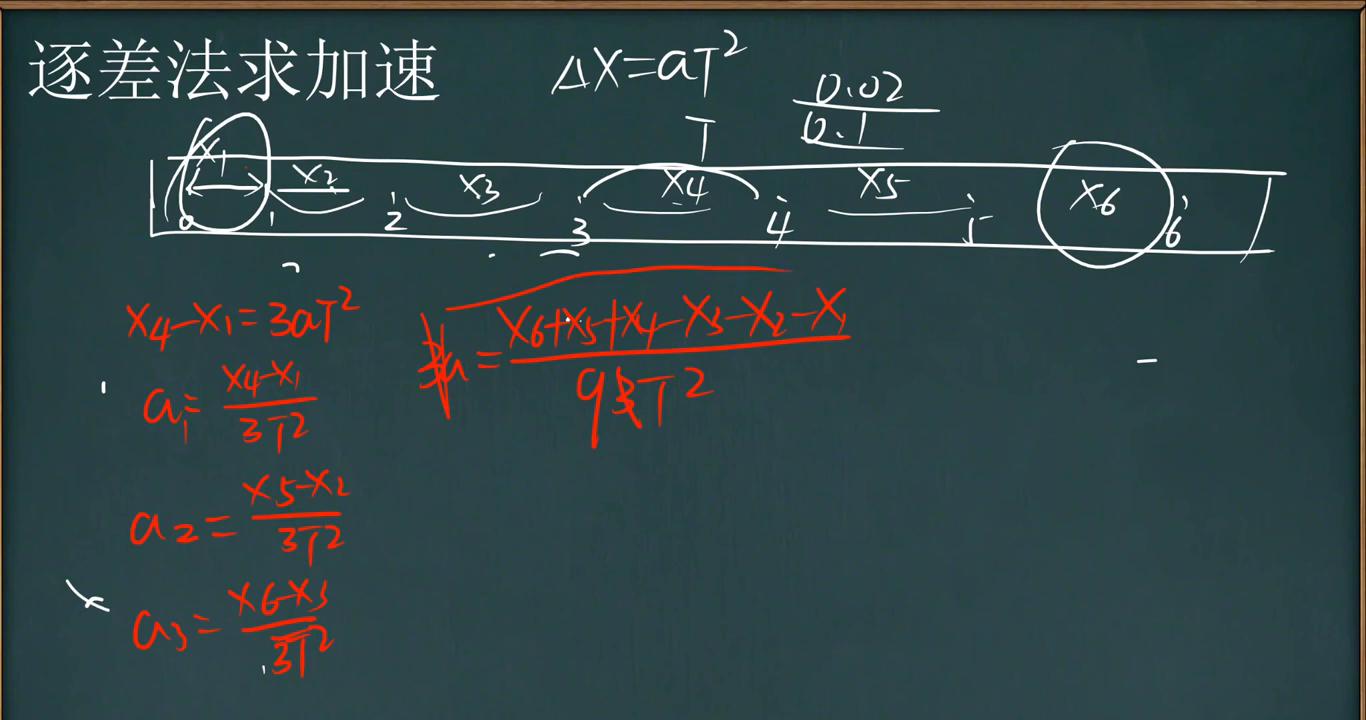 逐差法求加速
ΔX=aT²
0.02
0.1
T
X₁ X₂ X₃ X₄ X₅ X₆
0 1 2 3 4 5 6
X₄-X₁=3aT²
a₁=(X₄-X₁)/3T²
a₂=(X₅-X₂)/3T²
a₃=(X₆-X₃)/3T²
a=(X₆+X₅+X₄-X₃-X₂-X₁)/9T²